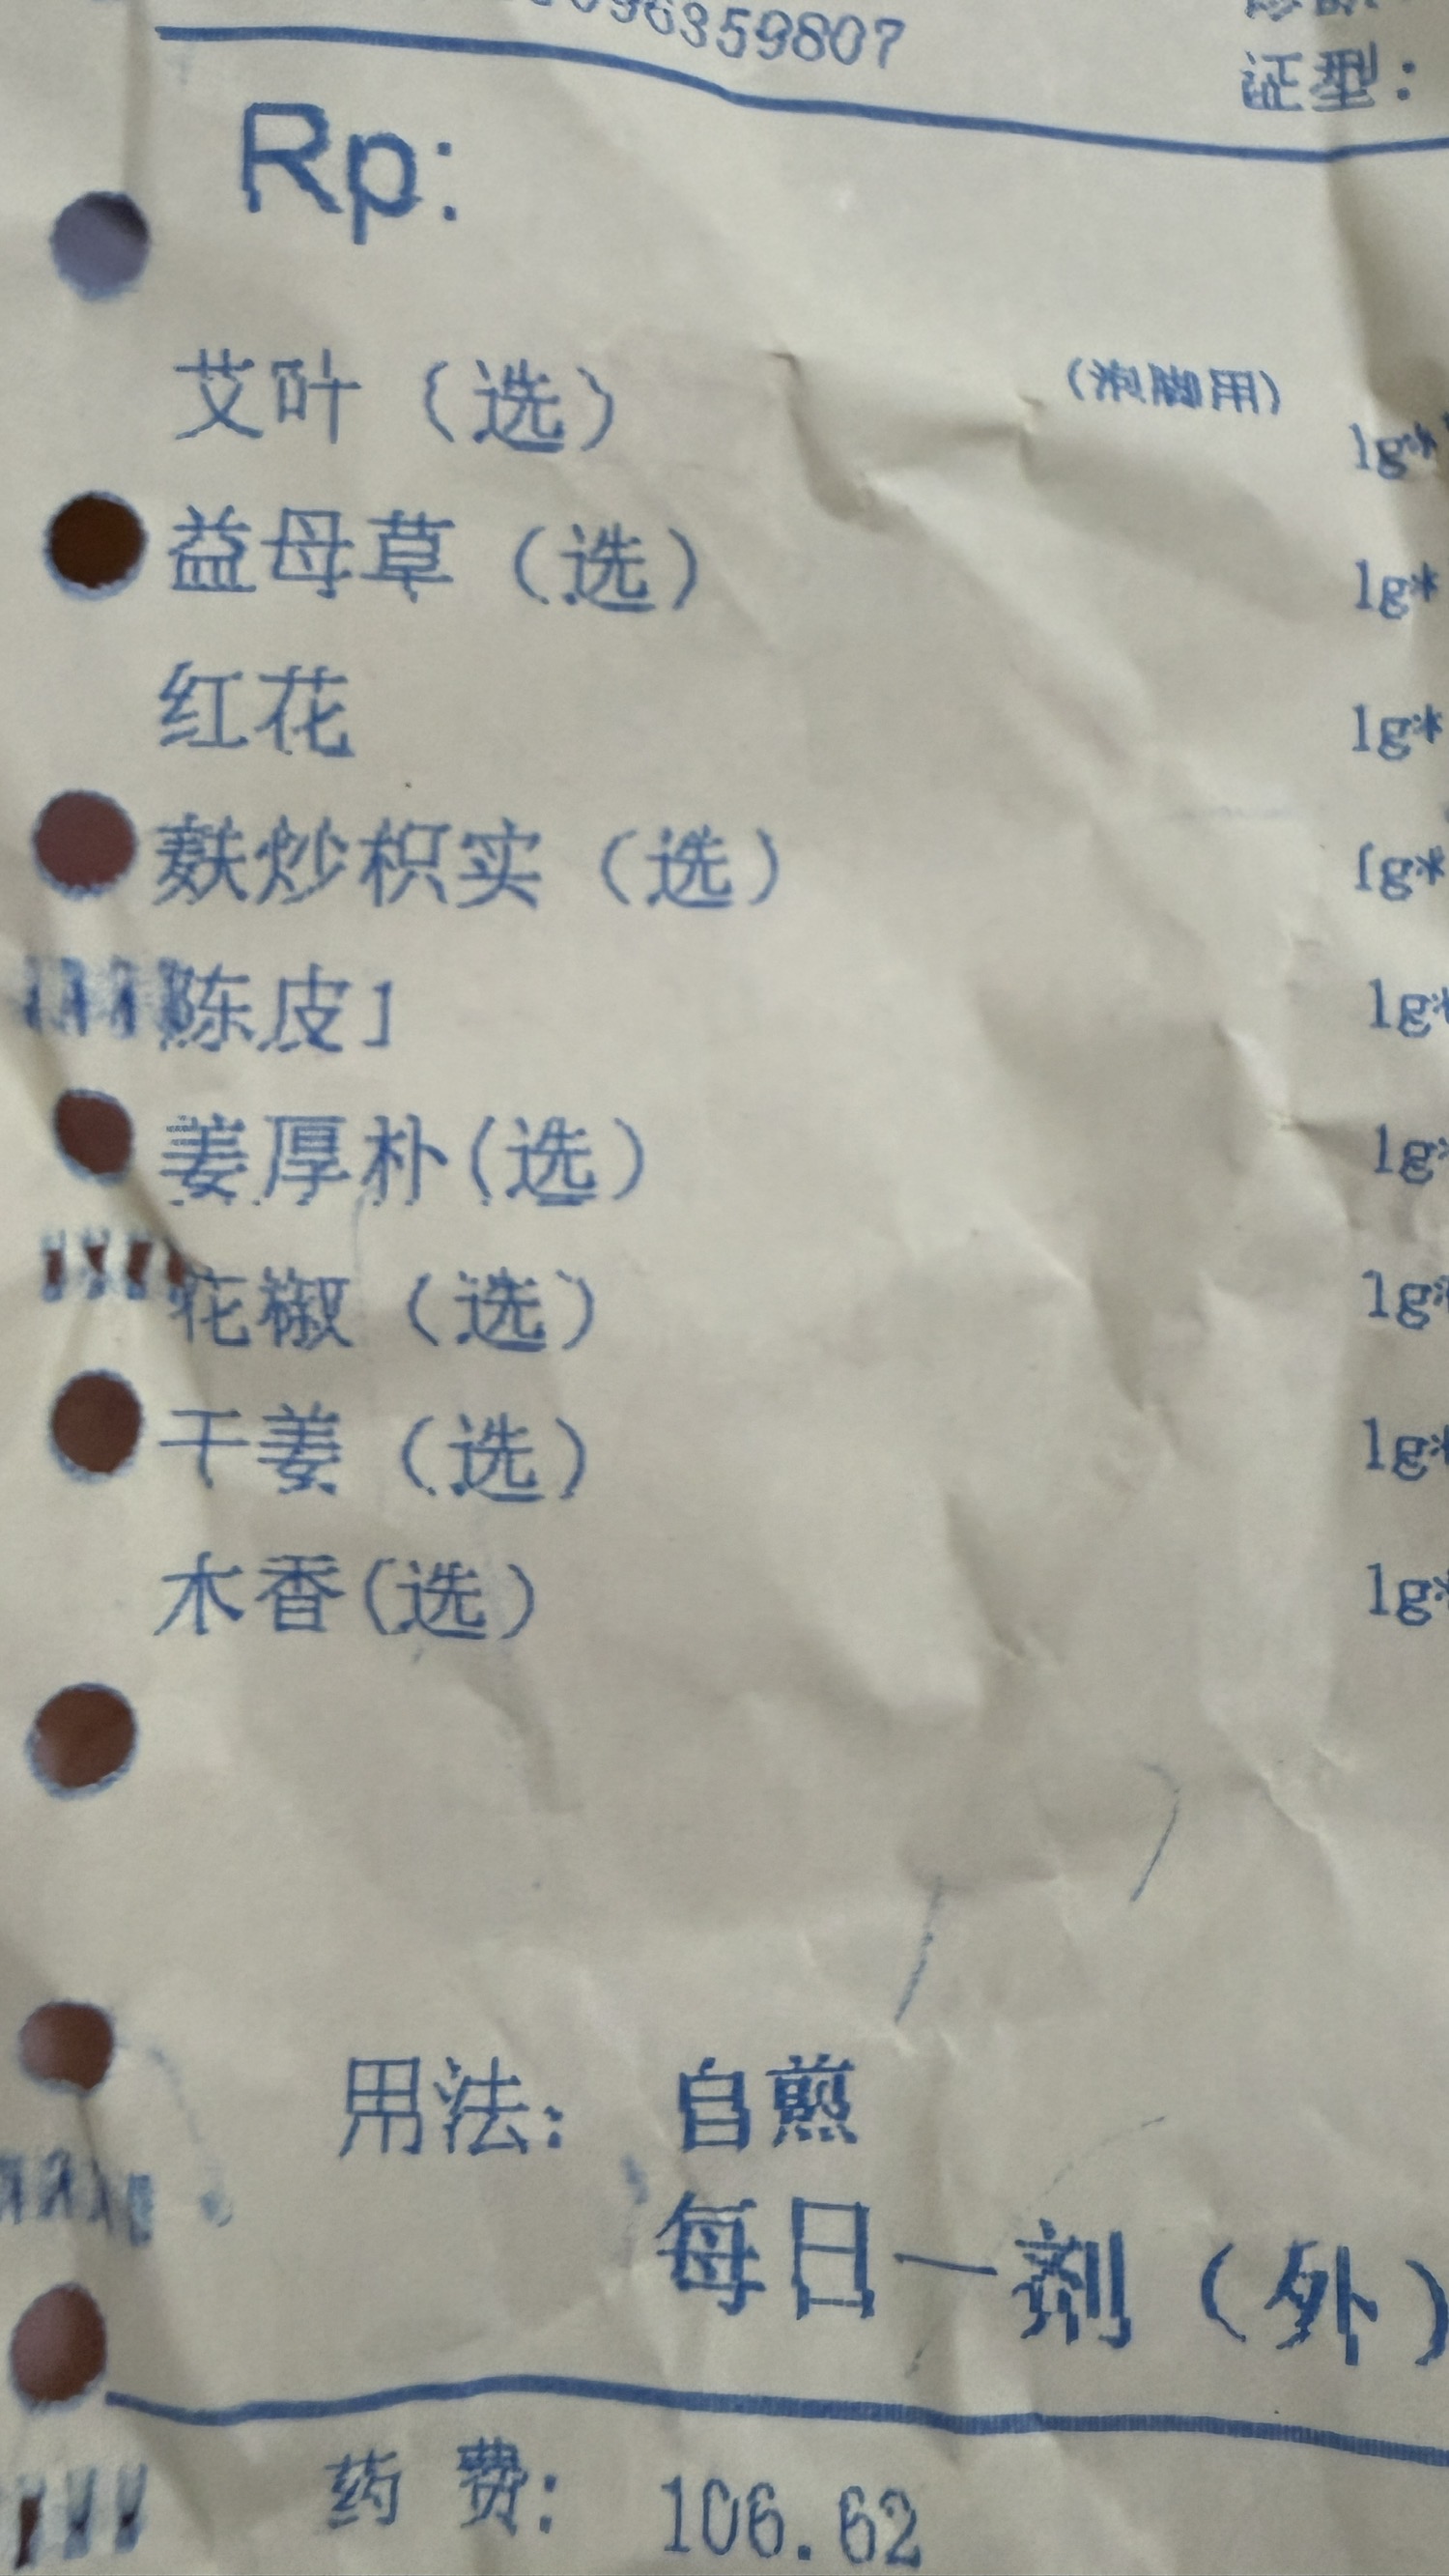 96359807
证型：
Rp:
艾叶（选） （泡脚用） 1g*
益母草（选） 1g*
红花 1g*
麸炒枳实（选） 1g*
陈皮J 1g*
姜厚朴(选） 1g*
花椒（选） 1g*
干姜（选） 1g*
木香(选） 1g*
用法： 自煎
每日一剂（外）
药 费： 106.62